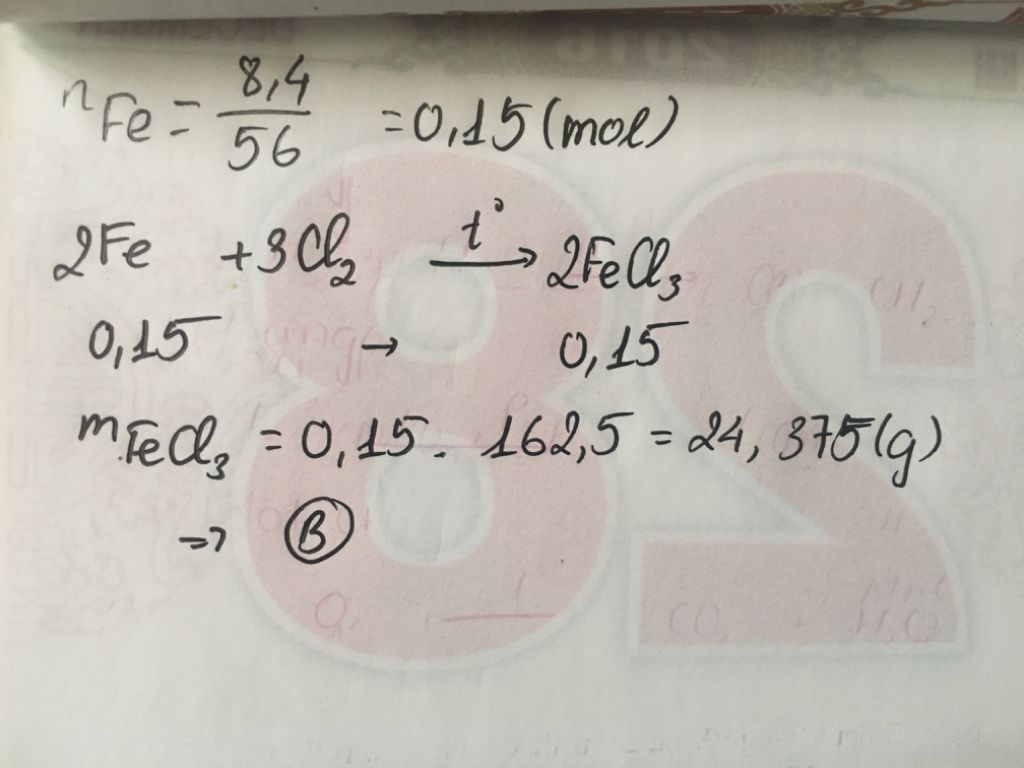 nFe = 8,4/56 = 0,15 (mol)
2Fe + 3Cl₂ —t°→ 2FeCl₃
0,15 → 0,15
mFeCl₃ = 0,15 . 162,5 = 24,375 (g)
=> B